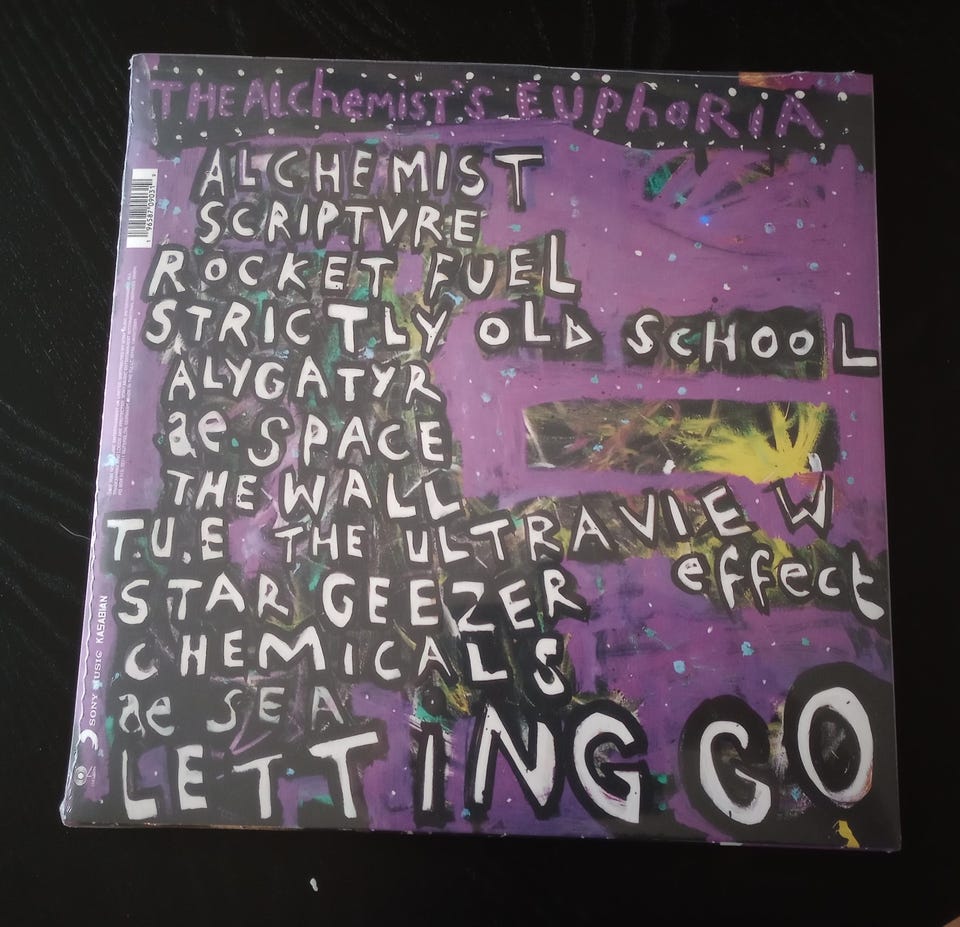 THE AlchemisT'S EUPhoRiA
ALCHEMIST
SCRIPTVRE
ROCKET FUEL
STRICTLY OLD SCHOOL
ALYGATYR
ae SPACE
THE WALL
T.U.E THE ULTRAVIEW
effect
STAR GEEZER
CHEMICALS
ae SEA
LETTING GO
1 96587 09031
SONY MUSIC KASABIAN